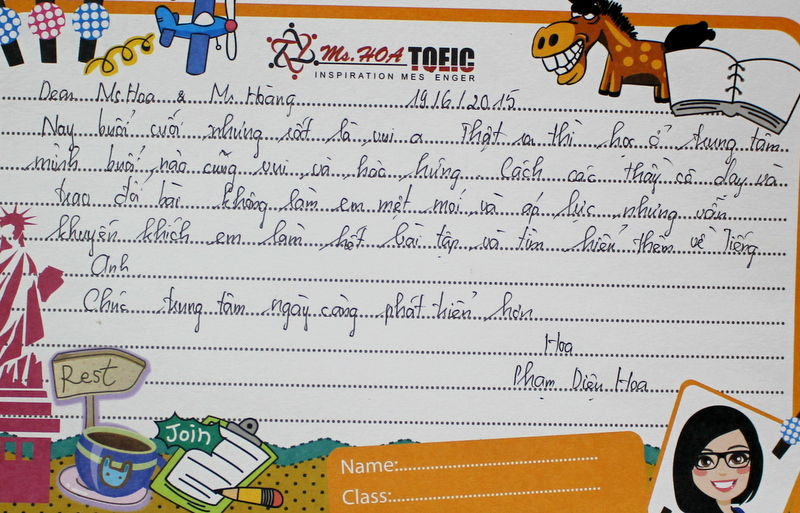 Ms. HOA TOEIC
INSPIRATION MES ENGER
Dear Ms. Hoa & Mr Hoàng 19/6/2015
Nay buổi cuối nhưng rất là vui ạ Thật ra thì học ở trung tâm
mình buổi nào cũng vui và hào hứng. Cách các thầy cô dạy và
trao đổi bài không làm em mệt mỏi và áp lực nhưng vẫn
khuyến khích em làm hết bài tập và tìm hiểu thêm về Tiếng
Anh
Chúc trung tâm ngày càng phát triển hơn
Hoa
Phạm Diệu Hoa
Rest
Join
Name:
Class: